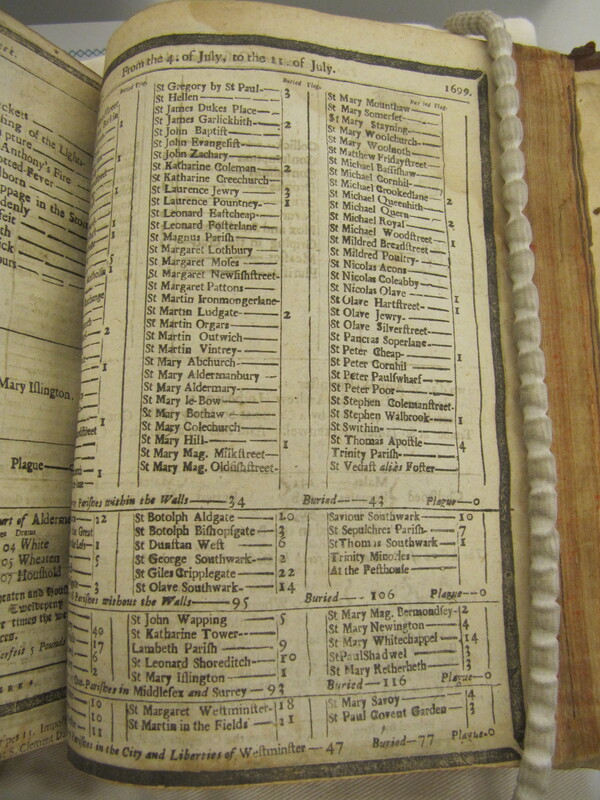 From the 4. of July, to the 11. of July.
1699.
Buried Plag.
St Gregory by St Paul 3
St Hellen
St James Dukes Place
St James Garlickhith 2
St John Baptist
St John Evangelist
St John Zachary
St Katharine Coleman 2
St Katharine Creechurch
St Laurence Jewry 3
St Laurence Pountney 1
St Leonard Eastcheap
St Leonard Fosterlane
St Magnus Parish
St Margaret Lothbury
St Margaret Moses
St Margaret Newfishstreet
St Margaret Pattons
St Martin Ironmongerlane
St Martin Ludgate 2
St Martin Orgars
St Martin Outwich
St Martin Vintrey
St Mary Abchurch
St Mary Aldermanbury
St Mary Aldermary
St Mary le-Bow
St Mary Bothaw
St Mary Colechurch
St Mary Hill 1
St Mary Mag. Milkstreet
St Mary Mag. Oldfishstreet
Buried Plag.
St Mary Mounthaw
St Mary Somerset
St Mary Stayning
St Mary Woolchurch
St Mary Woolnoth
St Matthew Fridaystreet
St Michael Bassishaw
St Michael Cornhil
St Michael Crookedlane
St Michael Queenhith 2
St Michael Quern
St Michael Royal 2
St Michael Woodstreet
St Mildred Breadstreet 1
St Mildred Poultry
St Nicolas Acons
St Nicolas Coleabby
St Nicolas Olave
St Olave Hartstreet 1
St Olave Jewry
St Olave Silverstreet
St Pancras Soperlane
St Peter Cheap 1
St Peter Cornhil
St Peter Paulswharf
St Peter Poor
St Stephen Colemanstreet
St Stephen Walbrook 1
St Swithin
St Thomas Apostle 4
Trinity Parish
St Vedast aliàs Foster
Parishes within the Walls 34 Buried 43 Plague 0
St Botolph Aldgate 10
St Botolph Bishopsgate 3
St Dunstan West 6
St George Southwark 2
St Giles Cripplegate 22
St Olave Southwark 14
Saviour Southwark 10
St Sepulchres Parish 7
St Thomas Southwark 1
Trinity Minories
At the Pesthouse
Parishes without the Walls 95 Buried 106 Plague 0
St John Wapping 5
St Katharine Tower
Lambeth Parish 9
St Leonard Shoreditch 10
St Mary Islington 1
St Mary Mag. Bermondsey 2
St Mary Newington 4
St Mary Whitechappel 14
St Paul Shadwel 3
St Mary Retherheth 3
Out-Parishes in Middlesex and Surrey 93 Buried 116 Plague 0
St Margaret Westminster 18
St Martin in the Fields 21
St Mary Savoy 4
St Paul Covent Garden 3
Parishes in the City and Liberties of Westminster 47 Buried 77 Plague 0
of the Lights
Anthony's Fire
Fever
in the
Mary Islington.
Plague
of
04 White
05 Wheaten